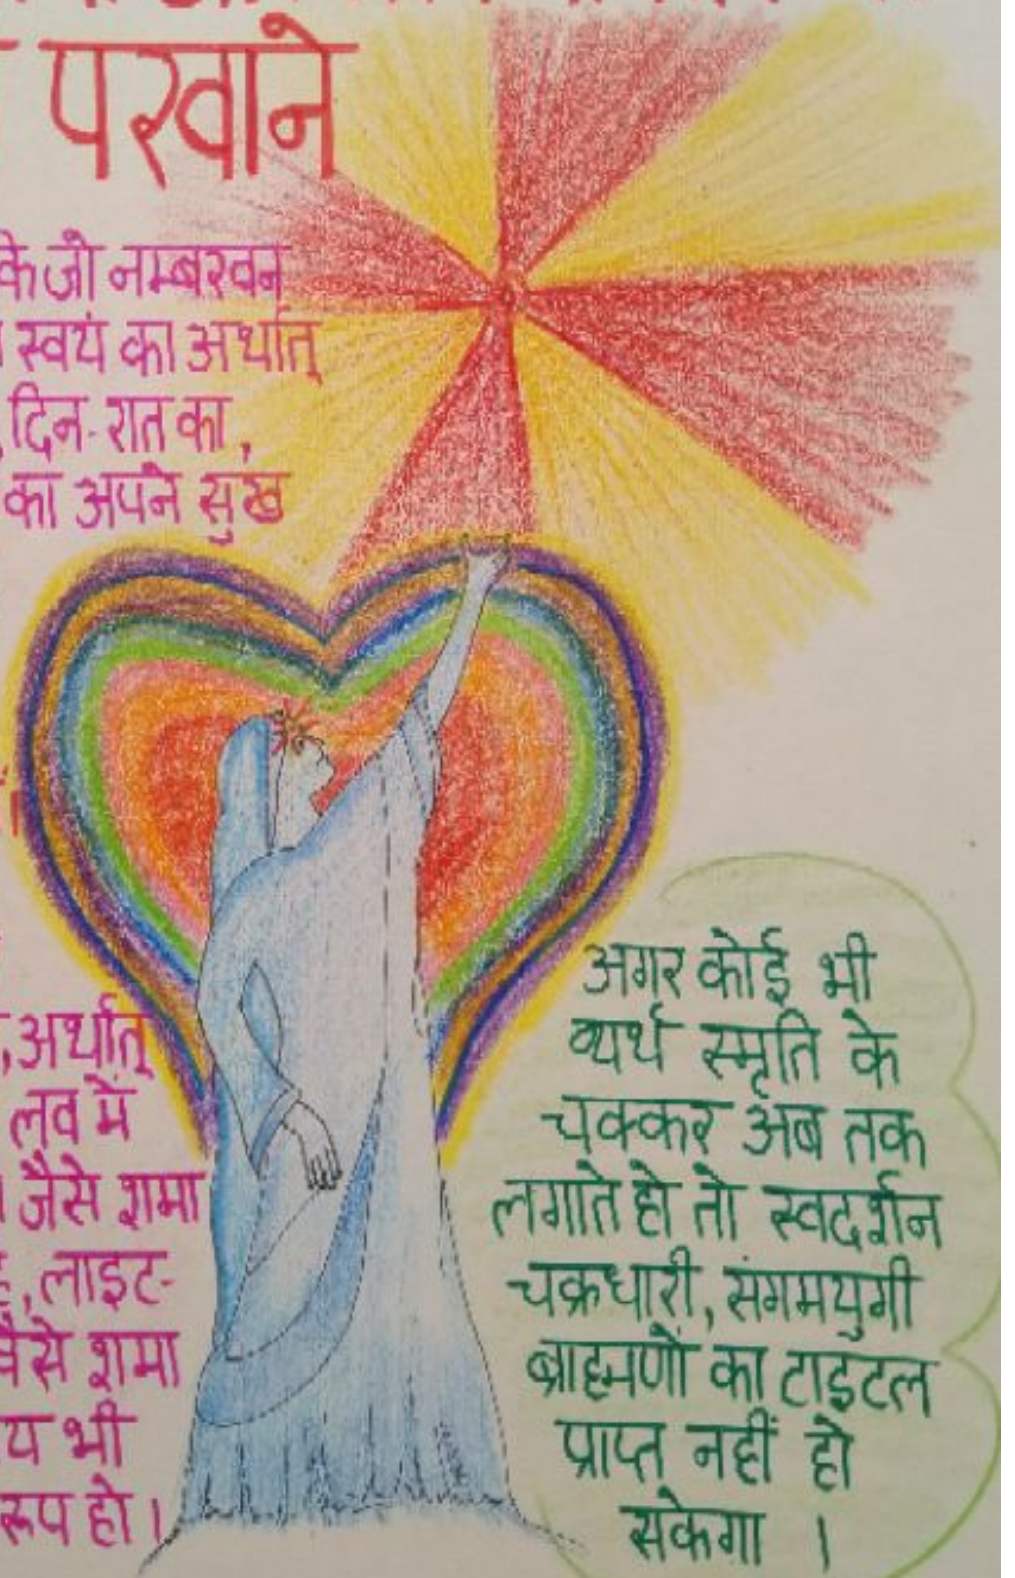 परवाने
के जो नम्बरवन
स्वयं का अर्थात्
दिन-रात का,
का अपने सुख
,अर्थात्
लव में
जैसे शमा
,लाइट-
वैसे शमा
भी
रूप हो।
अगर कोई भी
व्यर्थ स्मृति के
चक्कर अब तक
लगाते हो तो स्वदर्शन
चक्रधारी, संगमयुगी
ब्राह्मणों का टाइटल
प्राप्त नहीं हो
सकेगा ।